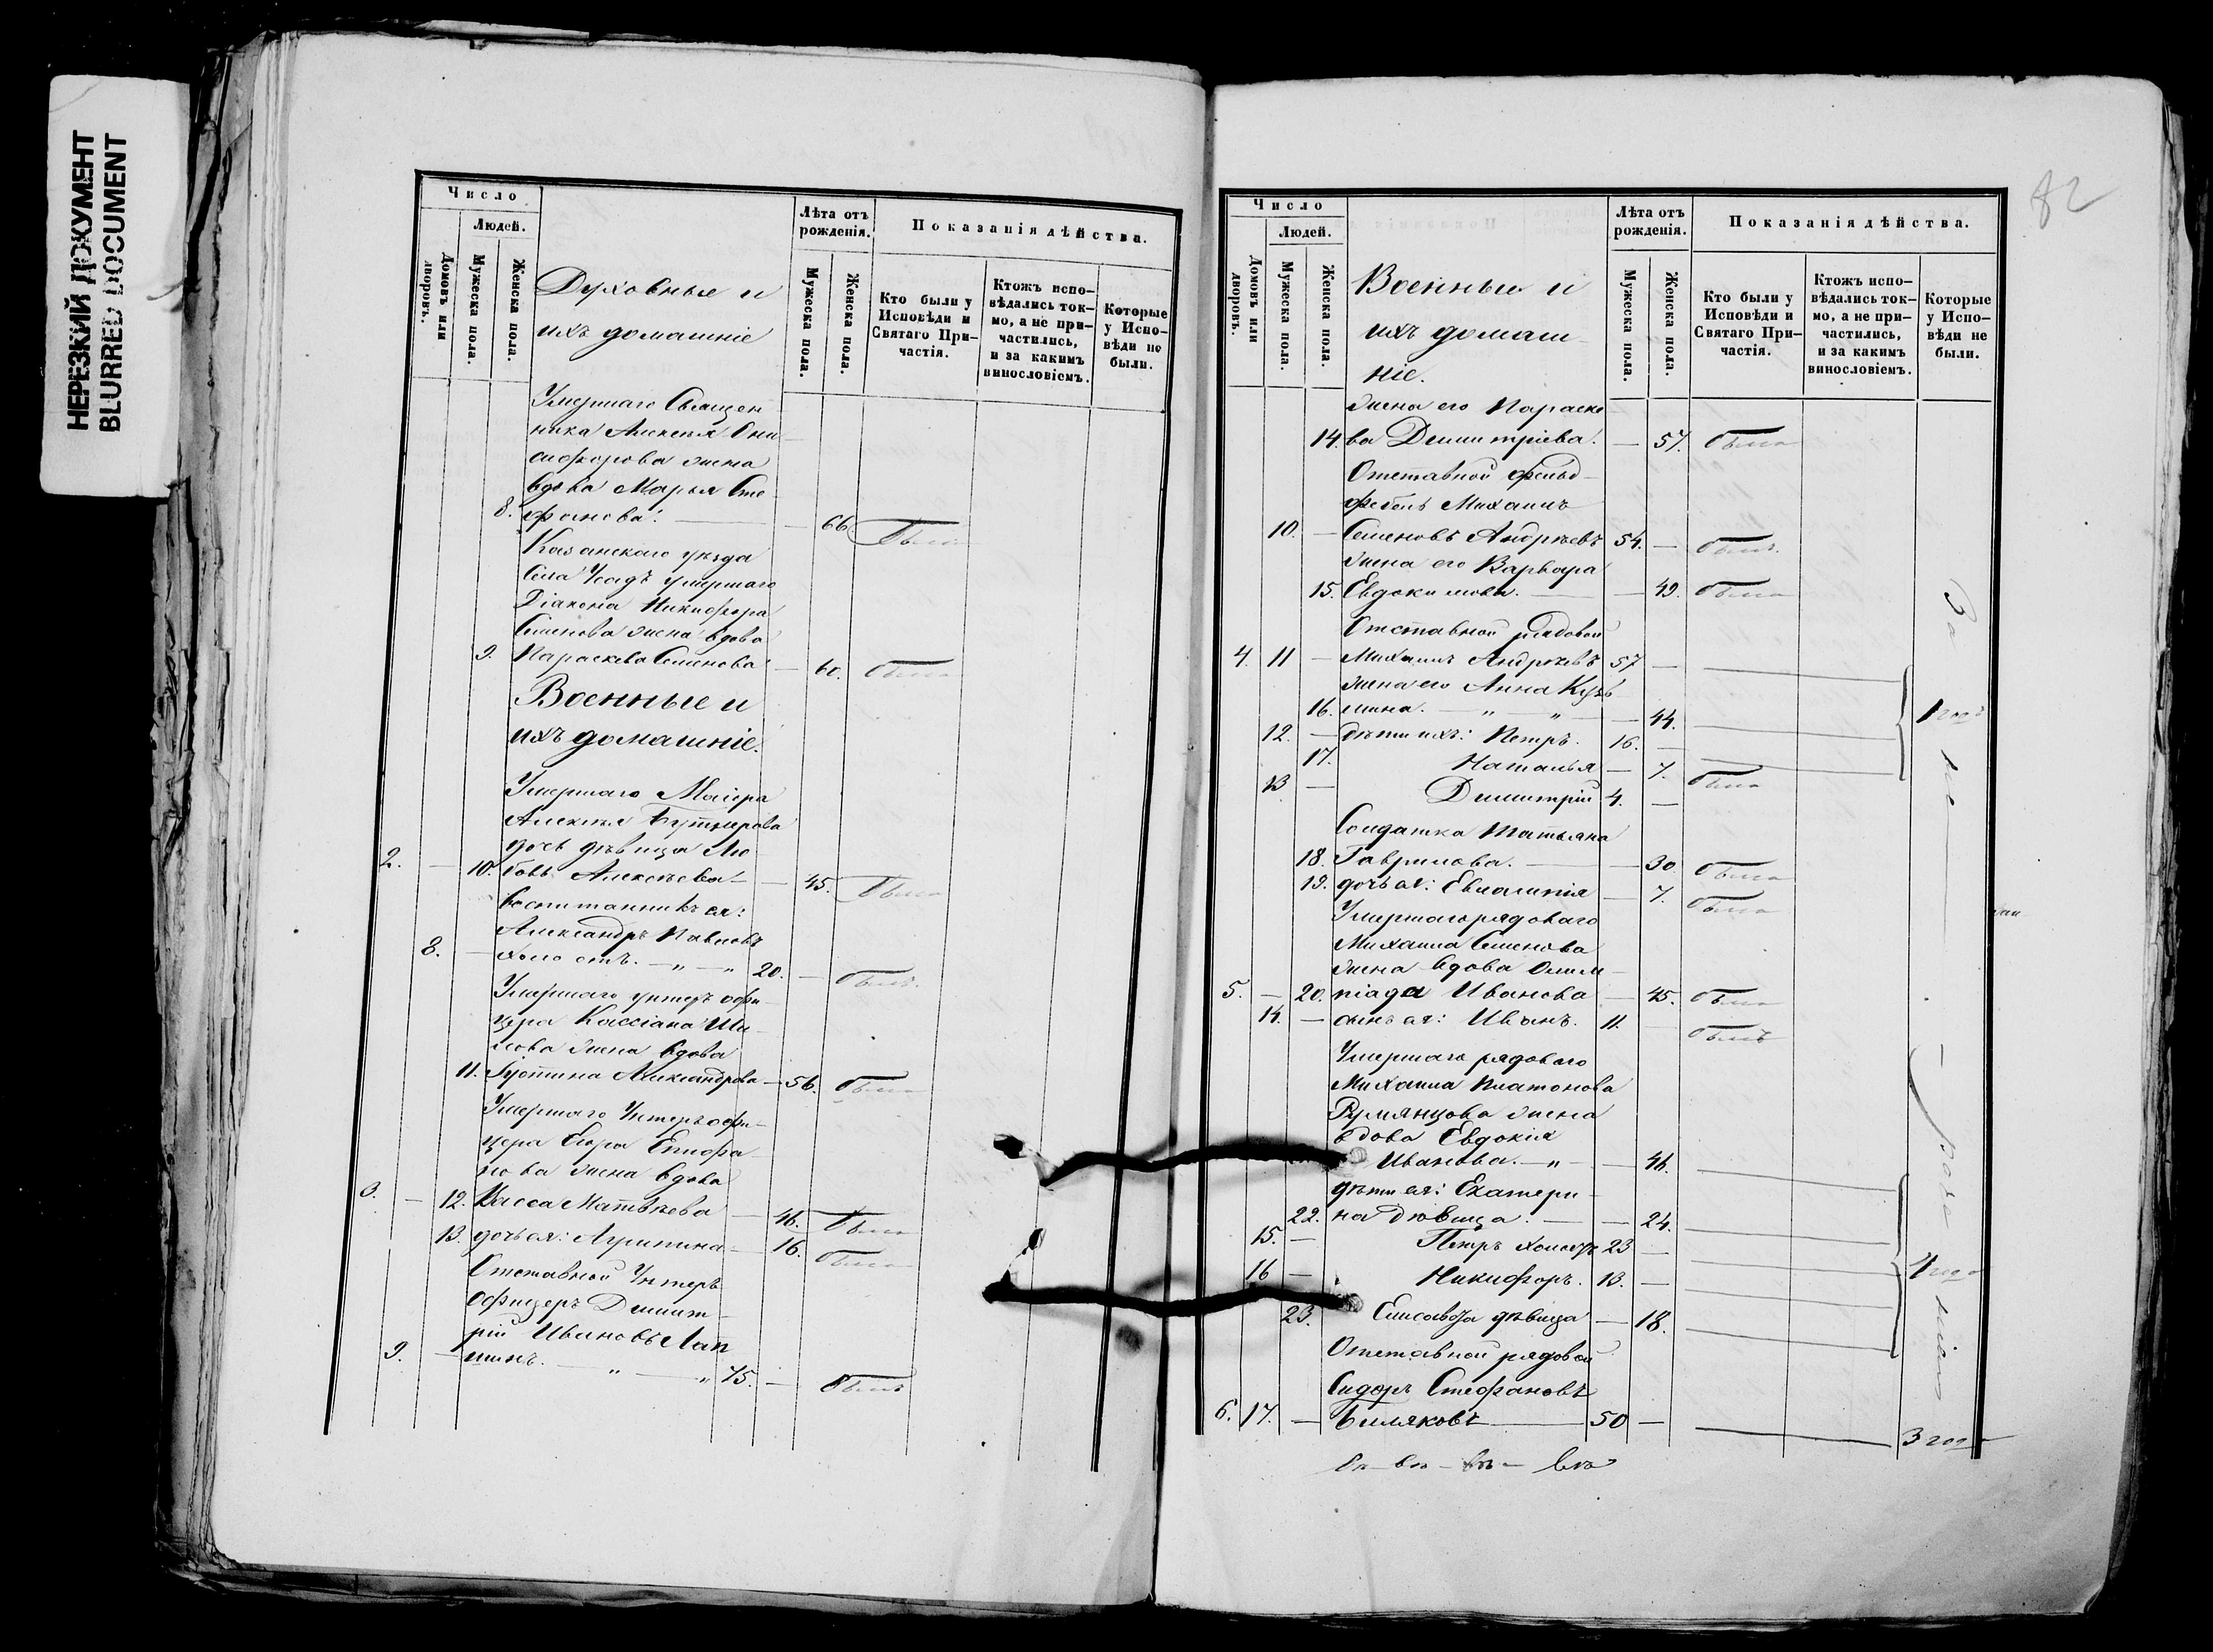 НЕРЕЗКИЙ ДОКУМЕНТ
BLURRED DOCUMENT
Число
Людей.
Домовъ или дворовъ.
Мужеска пола.
Женска пола.
Духовные и
ихъ домашніе
Лѣта отъ рожденія.
Мужеска пола.
Женска пола.
Показанія дѣйства.
Кто были у Исповѣди и Святаго Причастія.
Ктожъ исповѣдались токмо, а не причастились, и за какимъ винословіемъ.
Которые у Исповѣди не были.
Умершаго Священ
ника Алексѣя Они
сифорова жена
вдова Марья Сте
8. фанова. — — 66. была
Казанскаго уѣзда
села Усадъ умершаго
Діакона Никифора
Семенова жена вдова
9. Параскева Семенова — 60. была
Военные и
ихъ домашніе.
Умершаго Маіора
Алексѣя
дочь дѣвица Лю
2. — 10. бовь Алексѣева — — 45. была
воспитанникъ ея:
Александръ Павловъ
8. — холостъ. — „ — „ 20. — былъ
Умершаго унтеръ офи
цера Кассіана
жена вдова
11. Іустина Александрова — 56. была
Умершаго Унтеръ офи
цера Егора Епифа
нова жена вдова
3. — 12. Васса Матвѣева — 46. была
13. дочь ея: Агрипина — 16. была
Отставной Унтеръ
офицеръ Димит
рій Ивановъ Лап
9. — шинъ. — „ — „ 75. — былъ
82
Число
Людей.
Домовъ или дворовъ.
Мужеска пола.
Женска пола.
Военные и
ихъ домаш
ніе.
Лѣта отъ рожденія.
Мужеска пола.
Женска пола.
Показанія дѣйства.
Кто были у Исповѣди и Святаго Причастія.
Ктожъ исповѣдались токмо, а не причастились, и за какимъ винословіемъ.
Которые у Исповѣди не были.
жена его Параске
14. ва Димитріева. — 57. была
Отставной фельд
фебель Михаилъ
10. — Семеновъ Андреевъ 54. — былъ.
жена его Варвара
15. Евдокимова. — — 49. была
Отставной рядовой
4. 11 — Михаилъ Андреевъ 57 —
жена его Анна Кузь
16. мина. — „ — „ — 44. 1 годъ
12. — дѣти ихъ: Петръ. 16. —
17. Наталья — 7. была
13 — Димитрій 4. —
Солдатка Татьяна
18. Гаврилова. — — 30 была
19. дочь ея: Евлампія — 7. была
Умершаго рядоваго
Михаила Семенова
жена вдова Олим
5. — 20. піада Иванова — 45. была
14. — сынъ ея: Иванъ. 11. былъ
Умершаго рядоваго
Михаила Платонова
Румянцова жена
вдова Евдокія
Иванова. — „ — — 46.
дѣти ея: Екатери
22. на дѣвица. — — 24.
15. — Петръ холостъ 23 —
16 — Никифоръ. 13. —
23. Елисавета дѣвица — 18.
Отставной рядовой
Сидоръ Стефановъ
6. 17. — 50 — 3 года